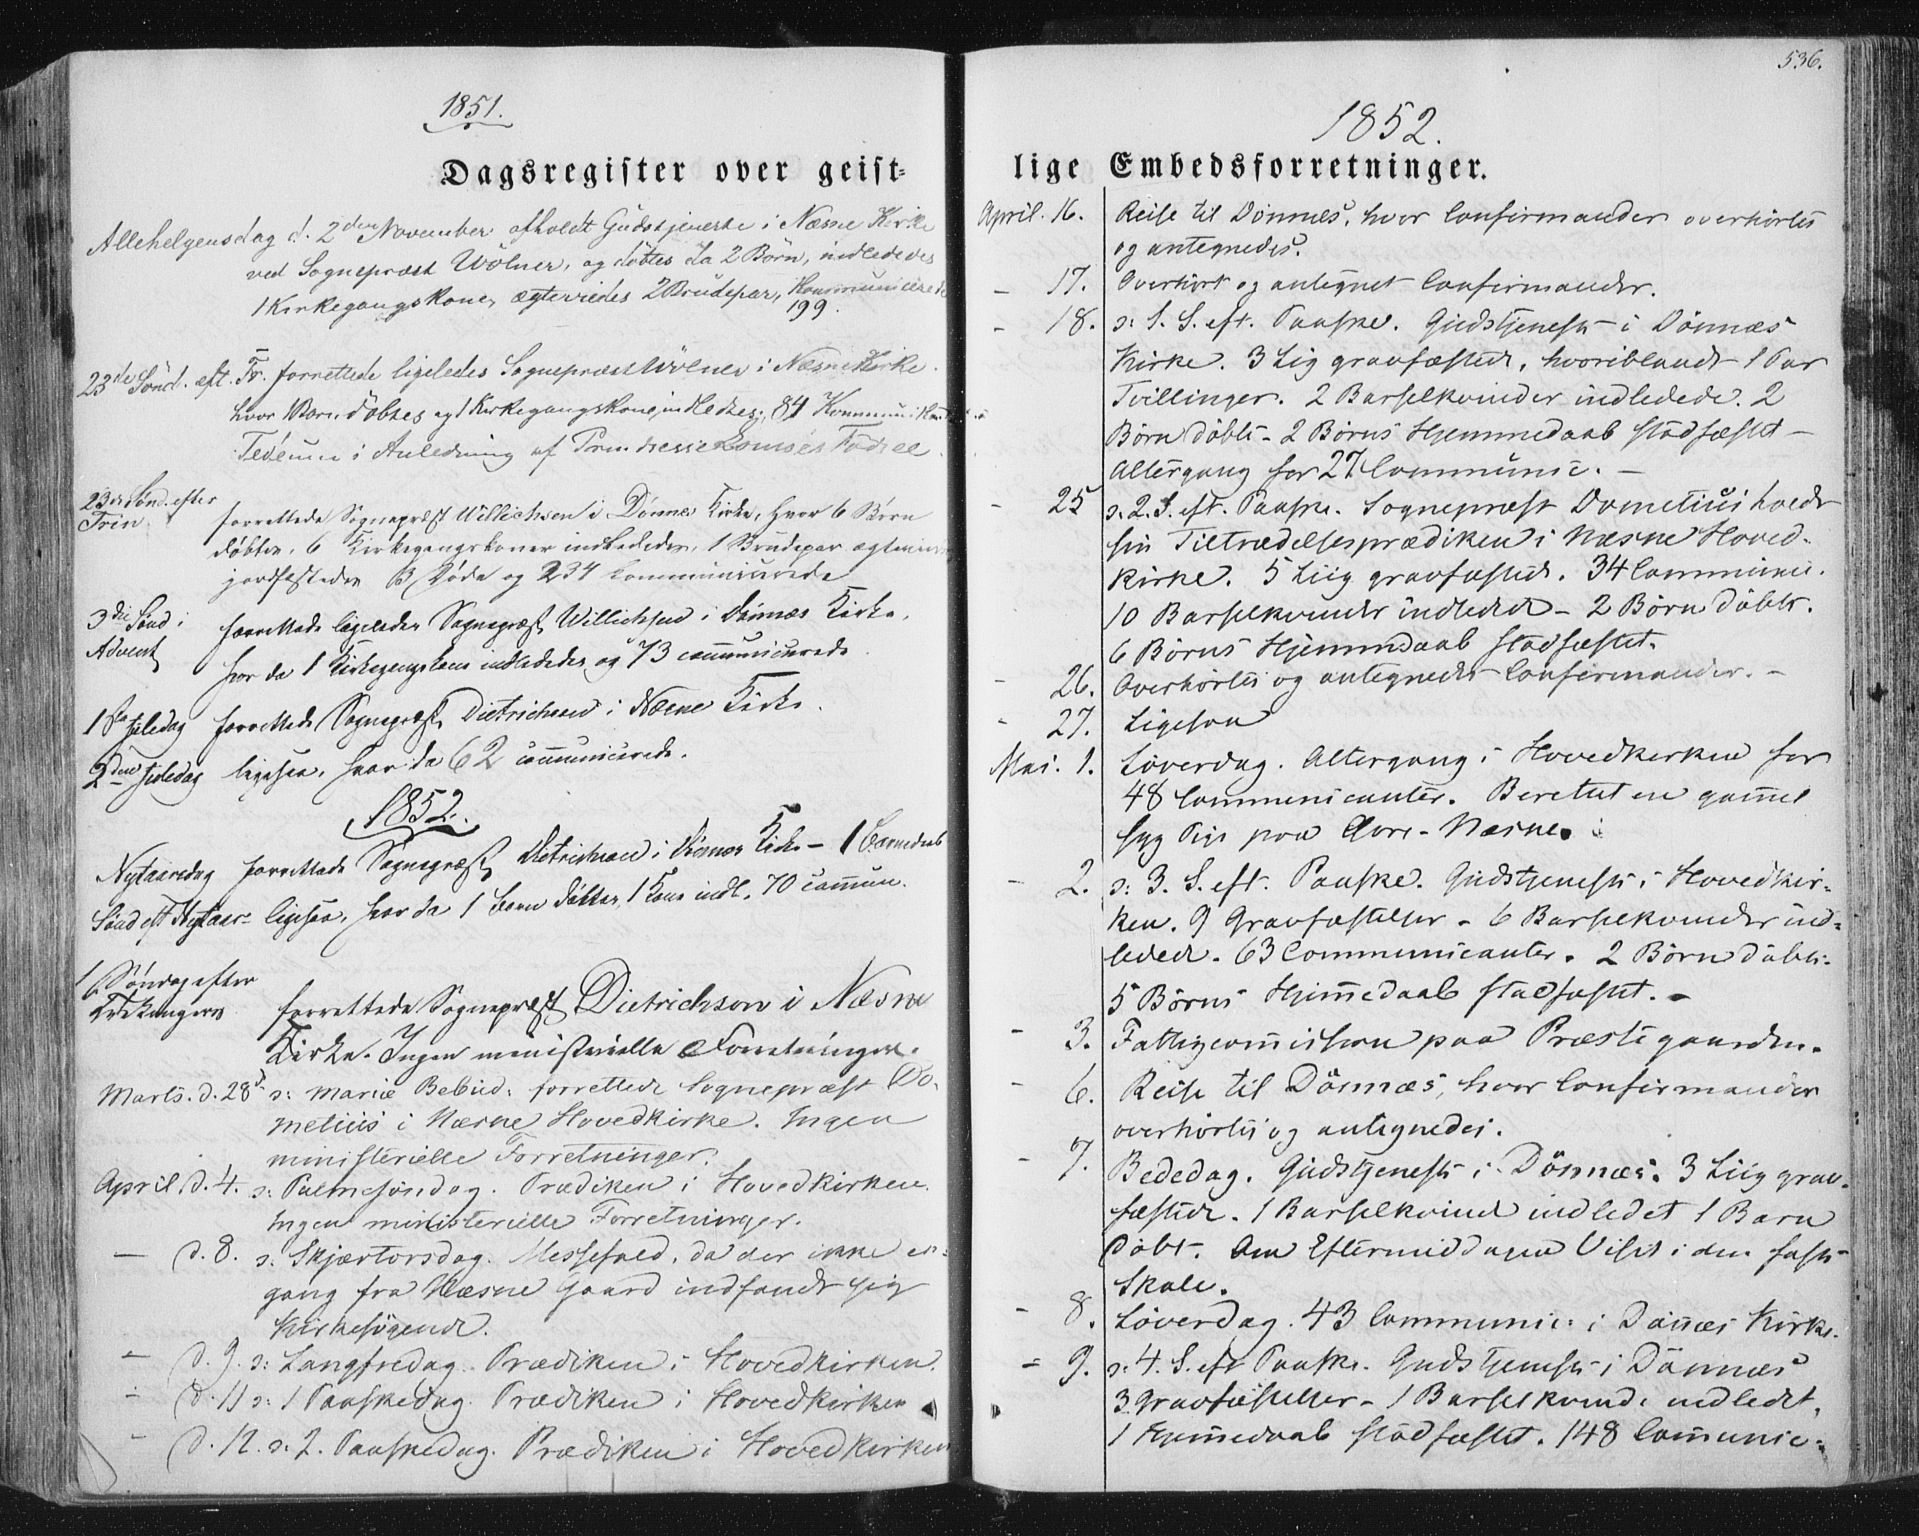 1851.
Dagsregister over geist-
Allehelgensdag d. 2den November afholdt Gudstjeneste i Næsne Kirke
ved Sognepræst Wölner, og døbtes da 2 Børn, indledes
1 Kirkegangskone, ægteviedes 2 Brudepar, Kommunicerede
199.
23de Sönd. eft. Tr. forrettede ligeledes Sognepræst Wölner i Næsne Kirke
hvor 1 Barn døbtes og 1 Kirkegangskone indledtes, 84
Tedeum i Anledning af Prindsesse Louises Födsel.
23de Sønd. efter
Trin.
forrettede Sognepræst Willichsen i Dønnes Kirke, hvor 6 Børn
døbtes, 6 Kirkegangskoner indlededes, 1 Brudepar
jordfæstedes 3 Døde og 234 communicerede
3die Sönd i
Advent
forrettede ligeledes Sognepræst Willichsen i Dönnæs Kirke,
hvor da 1 Kirkegangskone indlededes og 73 communicerede.
1ste Juledag forrettede Sognepræst Dietrichson i Næsne Kirke.
2den Juledag ligesaa, hvor da 62 communicerede.
1852.
Nytaarsdag forrettede Sognepræst Dietrichson i Dönnes Kirke – 1 Barnedaab
Sönd eft Nytaar ligesaa, hvor da 1 Barn döbtes, 1 Kone indl. 70 commun.
1. Søndag efter
Hl. 3 Konger
forrettede Sognepræst Dietrichson i Næsne
Kirke. Ingen ministerielle Forretninger.
Marts. d. 28d. s: Mariæ Bebud: forrettede Sognepræst Do-
metius i Næsne Hovedkirke. Ingen
ministerielle Forretninger.
April d. 4. s: Palmesøndag. Prædiken i Hovedkirken.
Ingen ministerielle Forretninger.
— d. 8. s: Skjærtorsdag. Messefald, da der ikke en-
gang fra Næsne Gaard indfandt sig
Kirkesøgende.
— d. 9. s: Langfredag. Prædiken i Hovedkirken.
- d. 11 s: 1 Paaskedag. Prædiken i Hovedkirken
- d. 12. s: 2. Paaskedag. Prædiken i Hovedkirken
536.
1852.
lige Embedsforretninger.
April. 16. Reise til Dönnæs, hvor Confirmander overhörtes
og antegnedes.
— 17. Overhört og antegnet Confirmander.
- 18. s: 1. S. eft. Paaske. Gudstjeneste i Dönnæs
Kirke. 3 Lig gravfæstede, hvoriblandt 1 Par
Tvillinger. 2 Barselkvinder indledede. 2
Børn døbte – 2 Børns Hjemmedaab stadfæstet –
Altergang for 27 Communic. –
- 25 s. 2. S. eft. Paaske. Sognepræst Dometius holdt
sin Tiltrædelsesprædiken i Næsne Hoved-
kirke. 5 Liig gravfæstede. 34 Communic.
10 Barselkvinder indledede – 2 Børn döbte.
6 Börns Hjemmdaab stadfæstet.
- 26. Overhörtes og antegnedes Confirmander. –
- 27. Ligesaa
Mai. 1. Löverdag. Altergang i Hovedkirken for
48 Communicanter. Berettet en gam̄el
syg Pige paa Hovs-Næsne.
– 2. s: 3. S. eft. Paaske. Gudstjeneste i Hovedkir-
ken. 9 Gravfæstelser – 6 Barselkvinder ind-
ledede. 63 Communicanter. 2 Børn døbte.
5 Börns Hjem̄edaab stadfæstet. –
– 3. Fattigcom̄ission paa Præstegaarden.
– 6. Reise til Dönnæs, hvor Confirmander
overhörtes og antegnedes.
– 7. Bededag. Gudstjeneste i Dönnæs. 3 Liig grav-
fæstede. 1 Barselkvinde indledet 1 Barn
døbt. Om Eftermiddagen Visit i den faste
Skole.
– 8. Löverdag. 43 Communic: i Dön̄æs Kirke.
– 9. s: 4. S. eft Paaske. Gudstjeneste i Dönnæs
3 Gravfæstelser – 1 Barselkvinde indledet.
1 Hjem̄edaab stadfæstet. 148 Com̄unic.